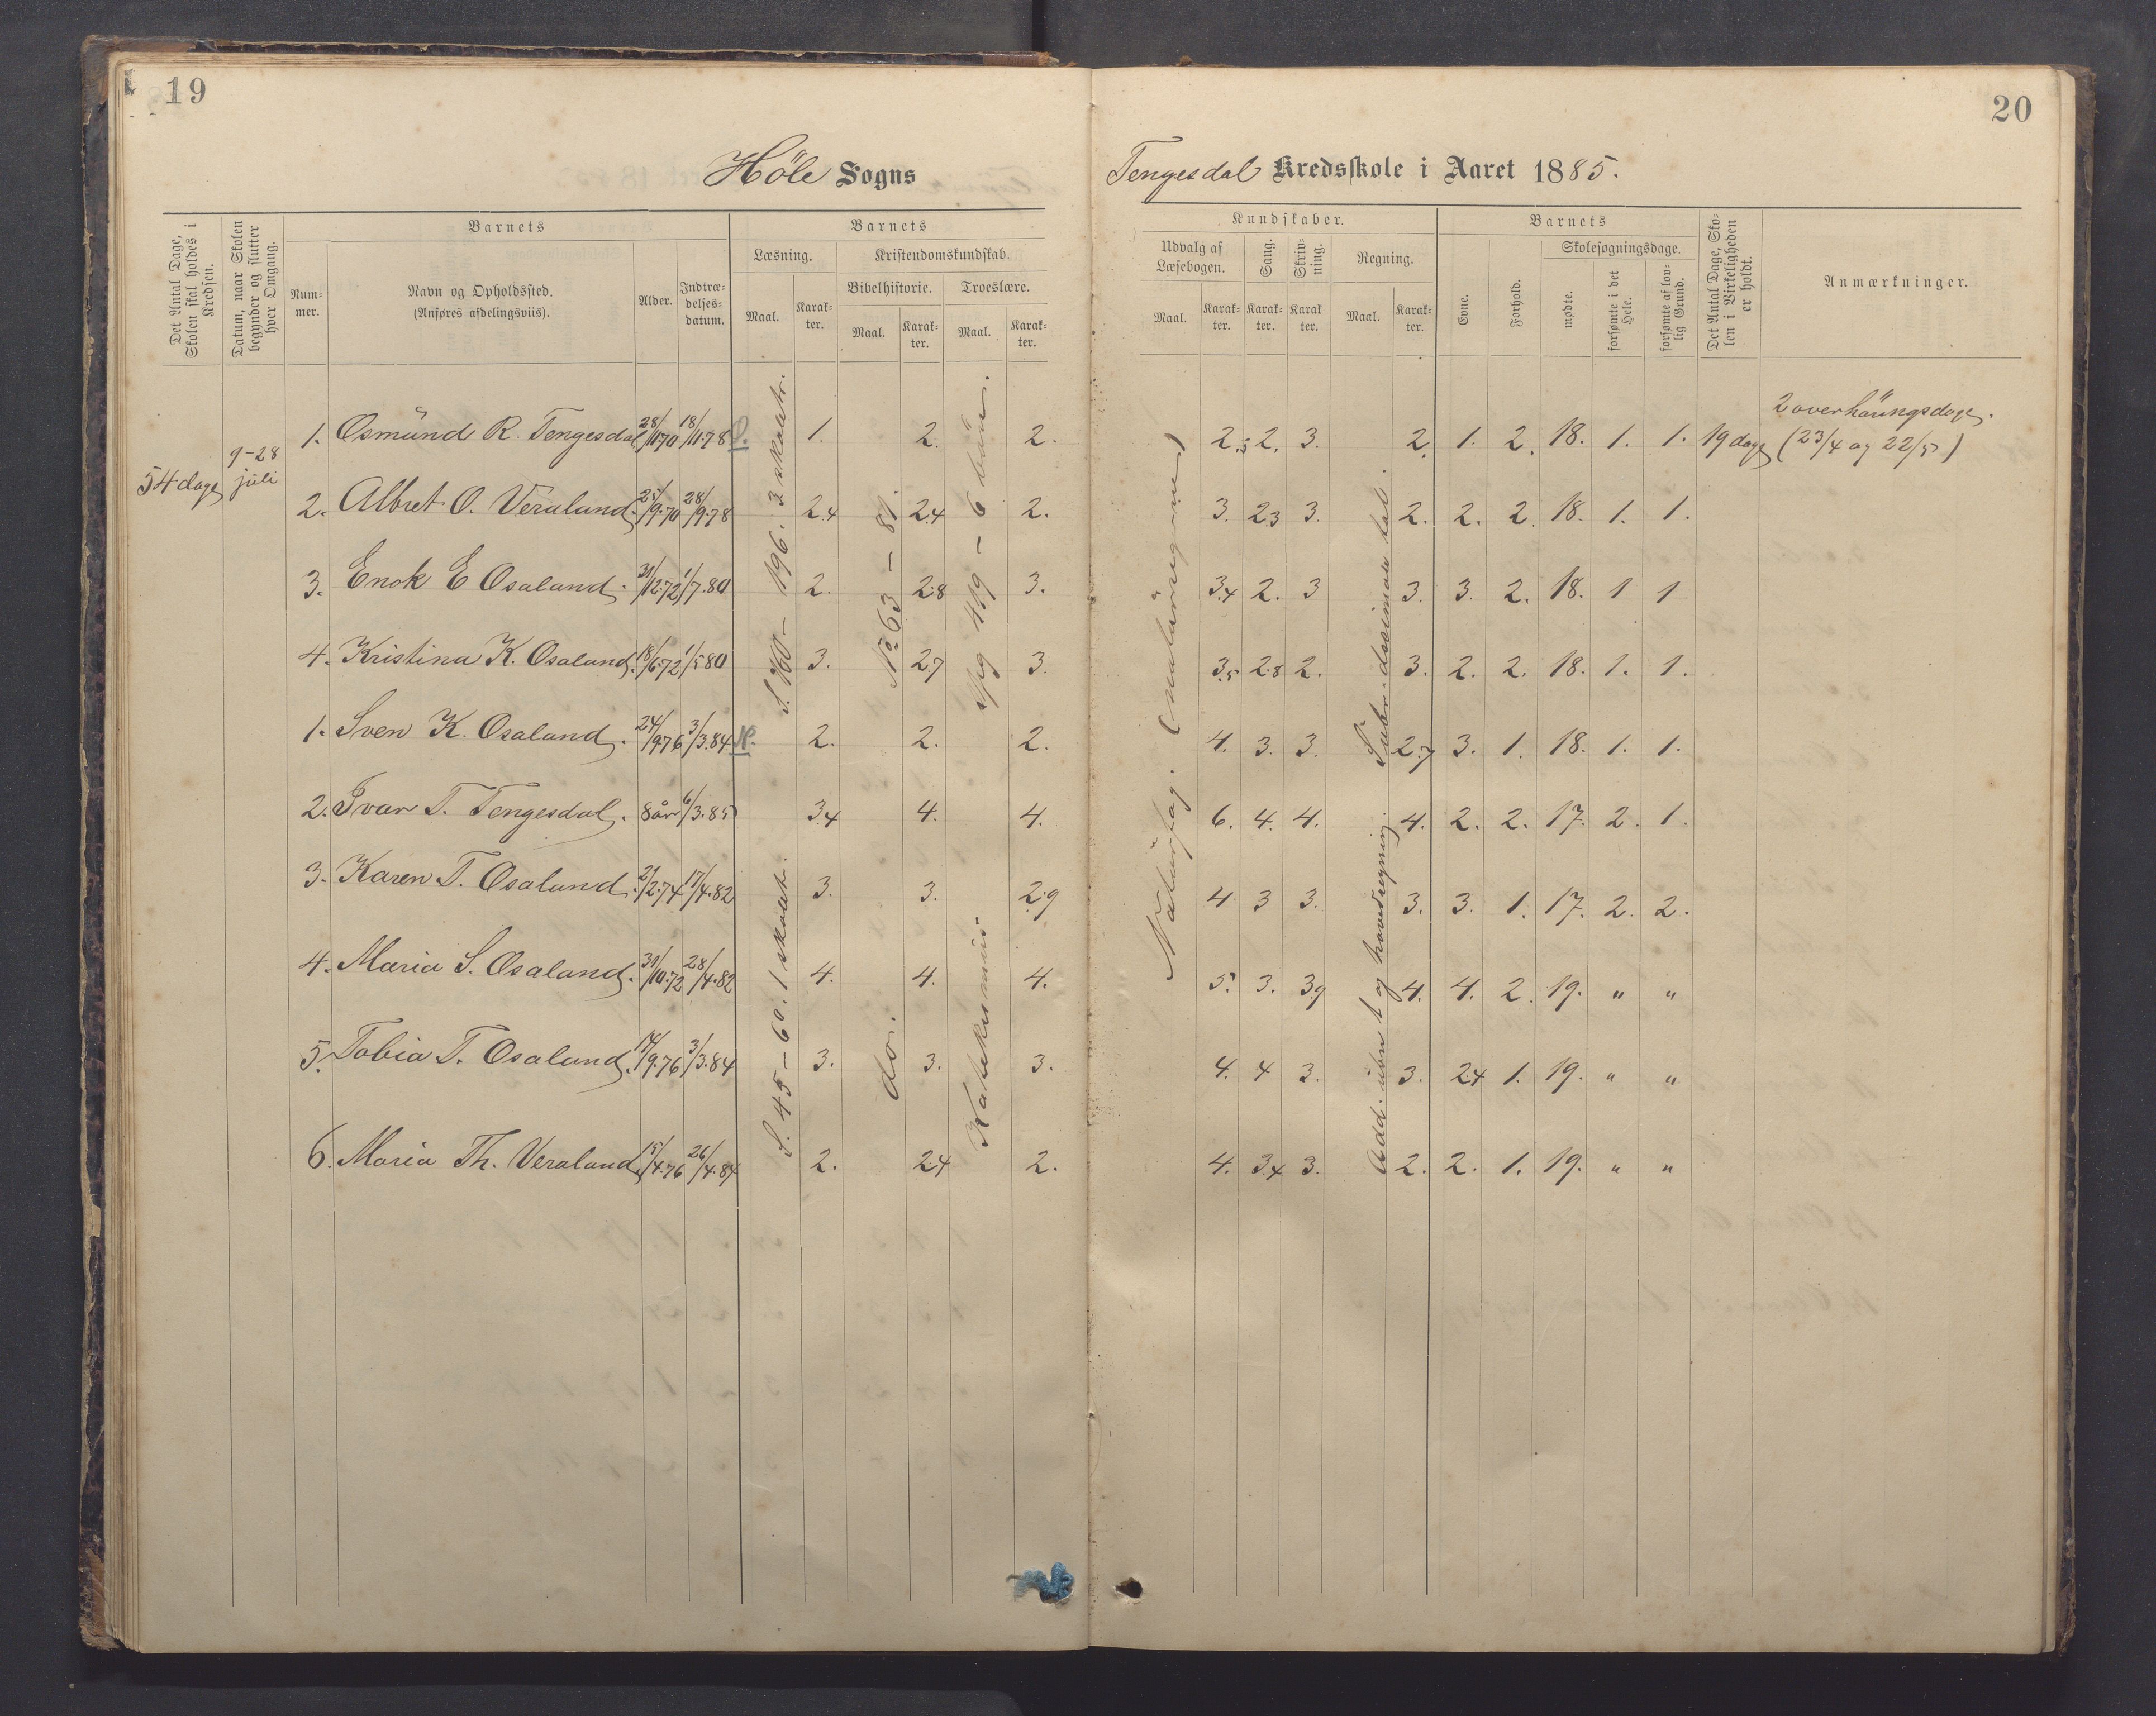 19
20
Höle Sogns
Tengesdal Kredsskole i Aaret 1885.
Det Antal Dage, Skolen skal holdes i Kredsen.
Datum, naar Skolen begynder og slutter hver Omgang.
Barnets
Num-mer.
Navn og Opholdssted.
(Anføres afdelingsviis).
Alder.
Indtræ-delses-datum.
Barnets
Læsning.
Maal.
Karak-ter.
Kristendomskundskab.
Bibelhistorie.
Maal.
Karak-ter.
Troeslære.
Maal.
Karak-ter.
Kundskaber.
Udvalg af Læsebogen.
Maal.
Karak-ter.
Sang.
Karak-ter.
Skriv-ning.
Karak ter.
Regning.
Maal.
Karak-ter.
Barnets
Evne.
Forhold.
Skolesøgningsdage.
mødte.
forsømte i det Hele.
forsømte af lov-lig Grund.
Det Antal Dage, Sko-len i Virkeligheden er holdt.
Anmærkninger.
54 dage
9-28 juli
1. Osmund R. Tengesdal 28/11.70 18/11.78 1. 2. 2. 2.3 2. 3. 2. 1. 2. 18. 1. 1. 19 dage
2 overhöringsdage. (23/4 og 22/5)
2. Albret O. Veraland. 25/9.70 28/9.78 2.4 2.4 2. 3. 2.3 3. 2. 2. 2. 18. 1. 1.
3. Enok E Osaland. 31/12.72 1/7.80 2. 2.8 3. 3.4 2. 3 3. 3. 2. 18. 1 1
4. Kristina K. Osaland. 18/6.72 1/5 80 3. 2.7 3. 3.5 2.8 2. 3. 2. 2. 18. 1. 1.
1. Sven K. Osaland. 24/9.76 3/3.84 2. 2. 2. 4. 3. 3. 2.7 3. 1. 18. 1. 1.
2. Ivar T. Tengesdal. 8 år 6/3.85 3.4 4. 4. 6. 4. 4. 4. 2. 2. 17. 2. 1.
3. Karen T. Osaland. 21/2.74 17/4.82 3. 3. 2.9 4 3 3. 3. 3. 1. 17. 2. 2.
4. Maria S. Osaland. 31/10.72 28/4.82 4. 4. 4. 5. 3. 3.9 4. 4. 2. 19. " "
5. Tobia T. Osaland. 17/9.76 3/3.84 3. 3. 3. 4. 4 3. 3. 2.4 1. 19. " "
6. Maria Th. Veraland 15/4.76 26/4.84 2. 2.4 2. 4. 3.4 3. 2. 2. 1. 19. " "
S. 160 - 196. 3 skoleåtr.
S. 45 - 60. 1 skoleåtr.
No 63 - 81
do.
spg 119 - 6 bön.
Katekismus.
Naturfag.
desimal tal.
Add. ubn t og hovedregning.